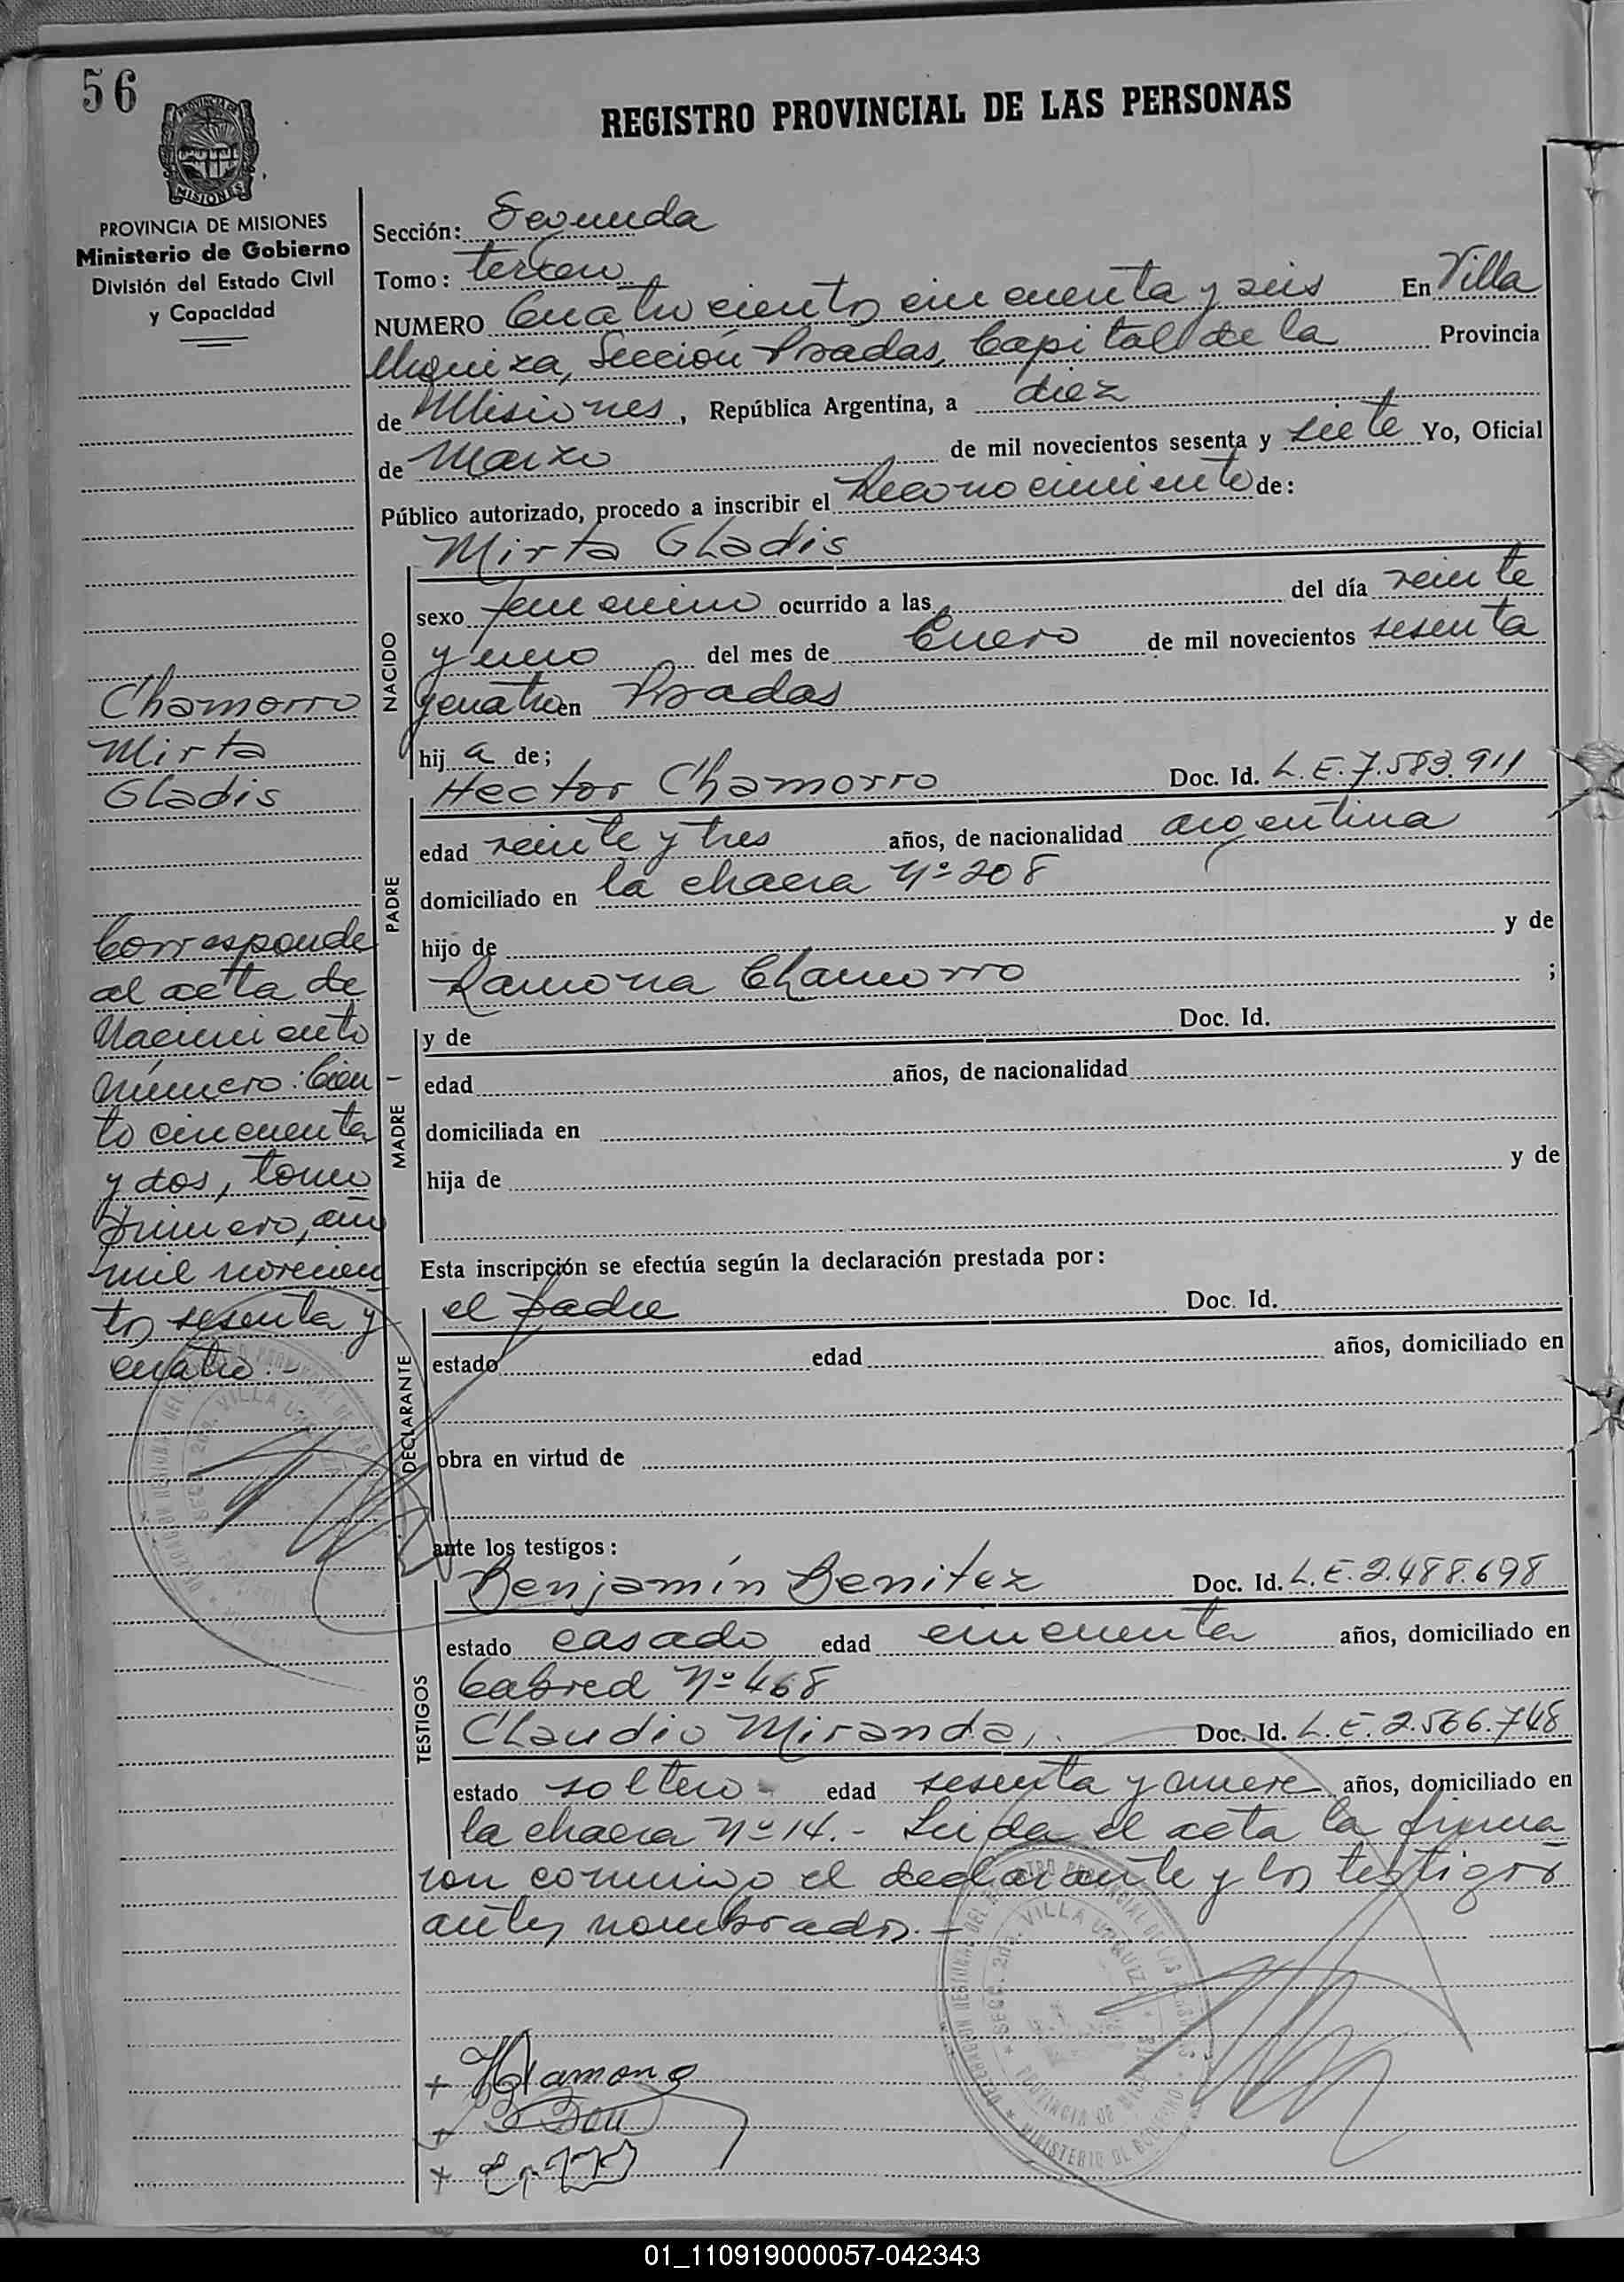 56
REGISTRO PROVINCIAL DE LAS PERSONAS
MISIONES
PROVINCIA DE MISIONES
Ministerio de Gobierno
División del Estado Civil
y Capacidad
Sección: Segunda
Tomo: tercero
NUMERO Cuatrociento cincuenta y seis En Villa
Urquiza, Sección Posadas, Capital de la Provincia
de Misiones, República Argentina, a diez
de Marzo de mil novecientos sesenta y siete Yo, Oficial
Público autorizado, procedo a inscribir el Reconocimiento de:
Mirta Gladis
NACIDO
sexo femenino ocurrido a las del día veinte
y uno del mes de Enero de mil novecientos sesenta
y cuatro en Posadas
hij a de;
Chamorro
Mirta
Gladis
PADRE
Hector Chamorro Doc. Id. L.E. 7.583.911
edad veinte y tres años, de nacionalidad argentina
domiciliado en la chacra Nº 208
hijo de y de
Ramona Chamorro ;
Corresponde
al acta de
Nacimiento
número: Cien-
to cincuenta
y dos, tomo
primero, año
mil novecien
tos sesenta y
cuatro.-
MADRE
y de Doc. Id.
edad años, de nacionalidad
domiciliada en
hija de y de
Esta inscripción se efectúa según la declaración prestada por:
DECLARANTE
el padre Doc. Id.
estado edad años, domiciliado en
obra en virtud de
ante los testigos:
TESTIGOS
Benjamín Benitez Doc. Id. L.E. 2.488.698
estado casado edad cincuenta años, domiciliado en
Cabred Nº 468
Claudio Miranda, Doc. Id. L.E. 2.566.748
estado soltero edad sesenta y nueve años, domiciliado en
la chacra Nº 14.- Leida el acta la firma
ron conmigo el declarante y los testigos
antes nombrados.-
SECC. 2da. VILLA URQUIZA
PROVINCIA DE MISIONES
MINISTERIO DE GOBIERNO
01_110919000057-042343